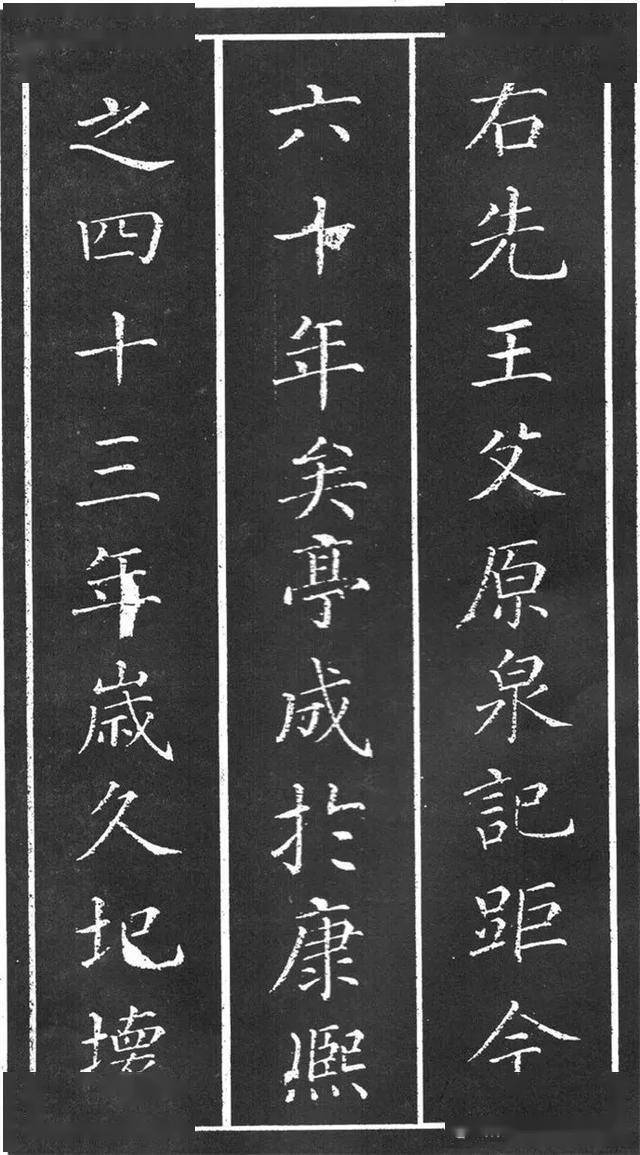 右先王父原泉記距今
六十年矣亭成於康熙
之四十三年歳久圮壞